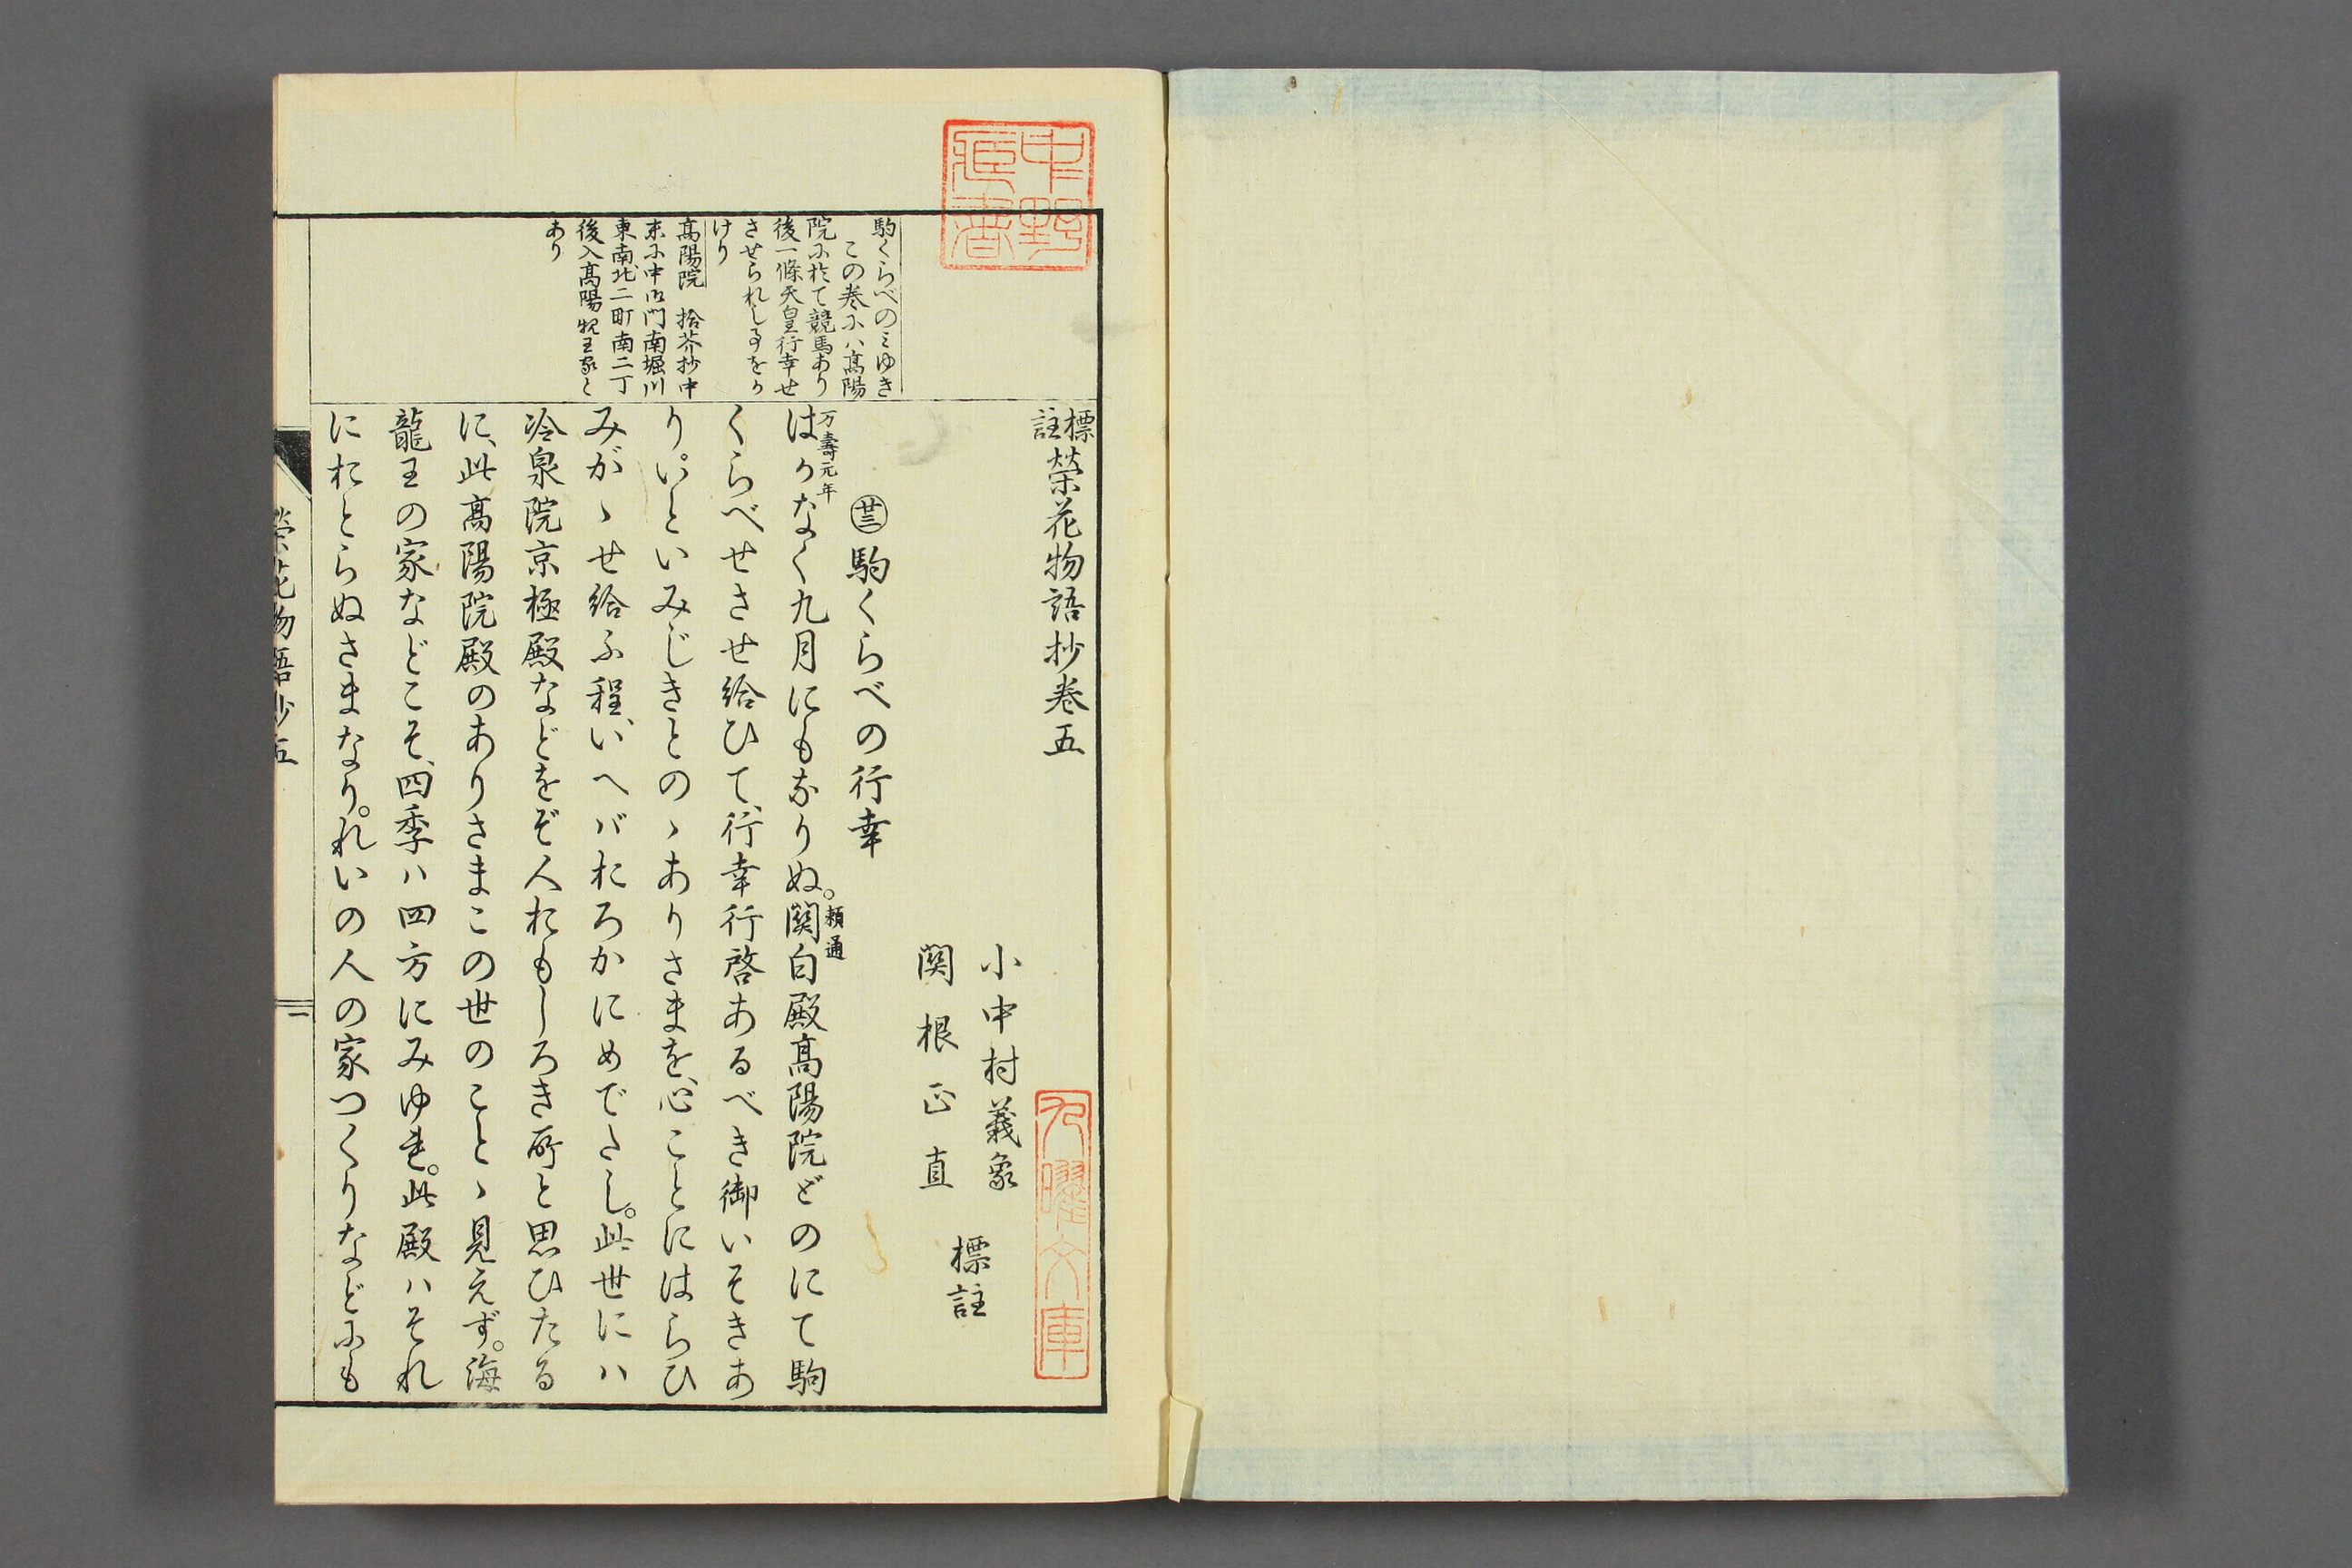 標註 榮花物語抄卷五
小中村義象
關根正直
標註
廿三 駒くらべの行幸
万壽元年
はかなく九月にもなりぬ。關白殿高陽院どのにて駒
頼通
くらべせさせ給ひて、行幸行啓あるべき御いそきあ
り。いといみじきとのゝありさまを、心ことにはらひ
みがゝせ給ふ程、いへバおろかにめでたし。此世にハ
冷泉院京極殿などをぞ人おもしろき所と思ひたる
に、此高陽院殿のありさまこの世のことゝ見えず。海
龍王の家などこそ、四季ハ四方にみゆれ。此殿ハそれ
におとらぬさまなり。れいの人の家つくりなどにも
駒くらべのみゆき
この卷にハ高陽
院に於て競馬あり
後一條天皇行幸せ
させられし事をか
けり
高陽院 拾芥抄中
末に中御門南堀川
東南北二町南二丁
後入高陽親王家と
あり
榮花物語抄五
一
中野藏書
九曜文庫